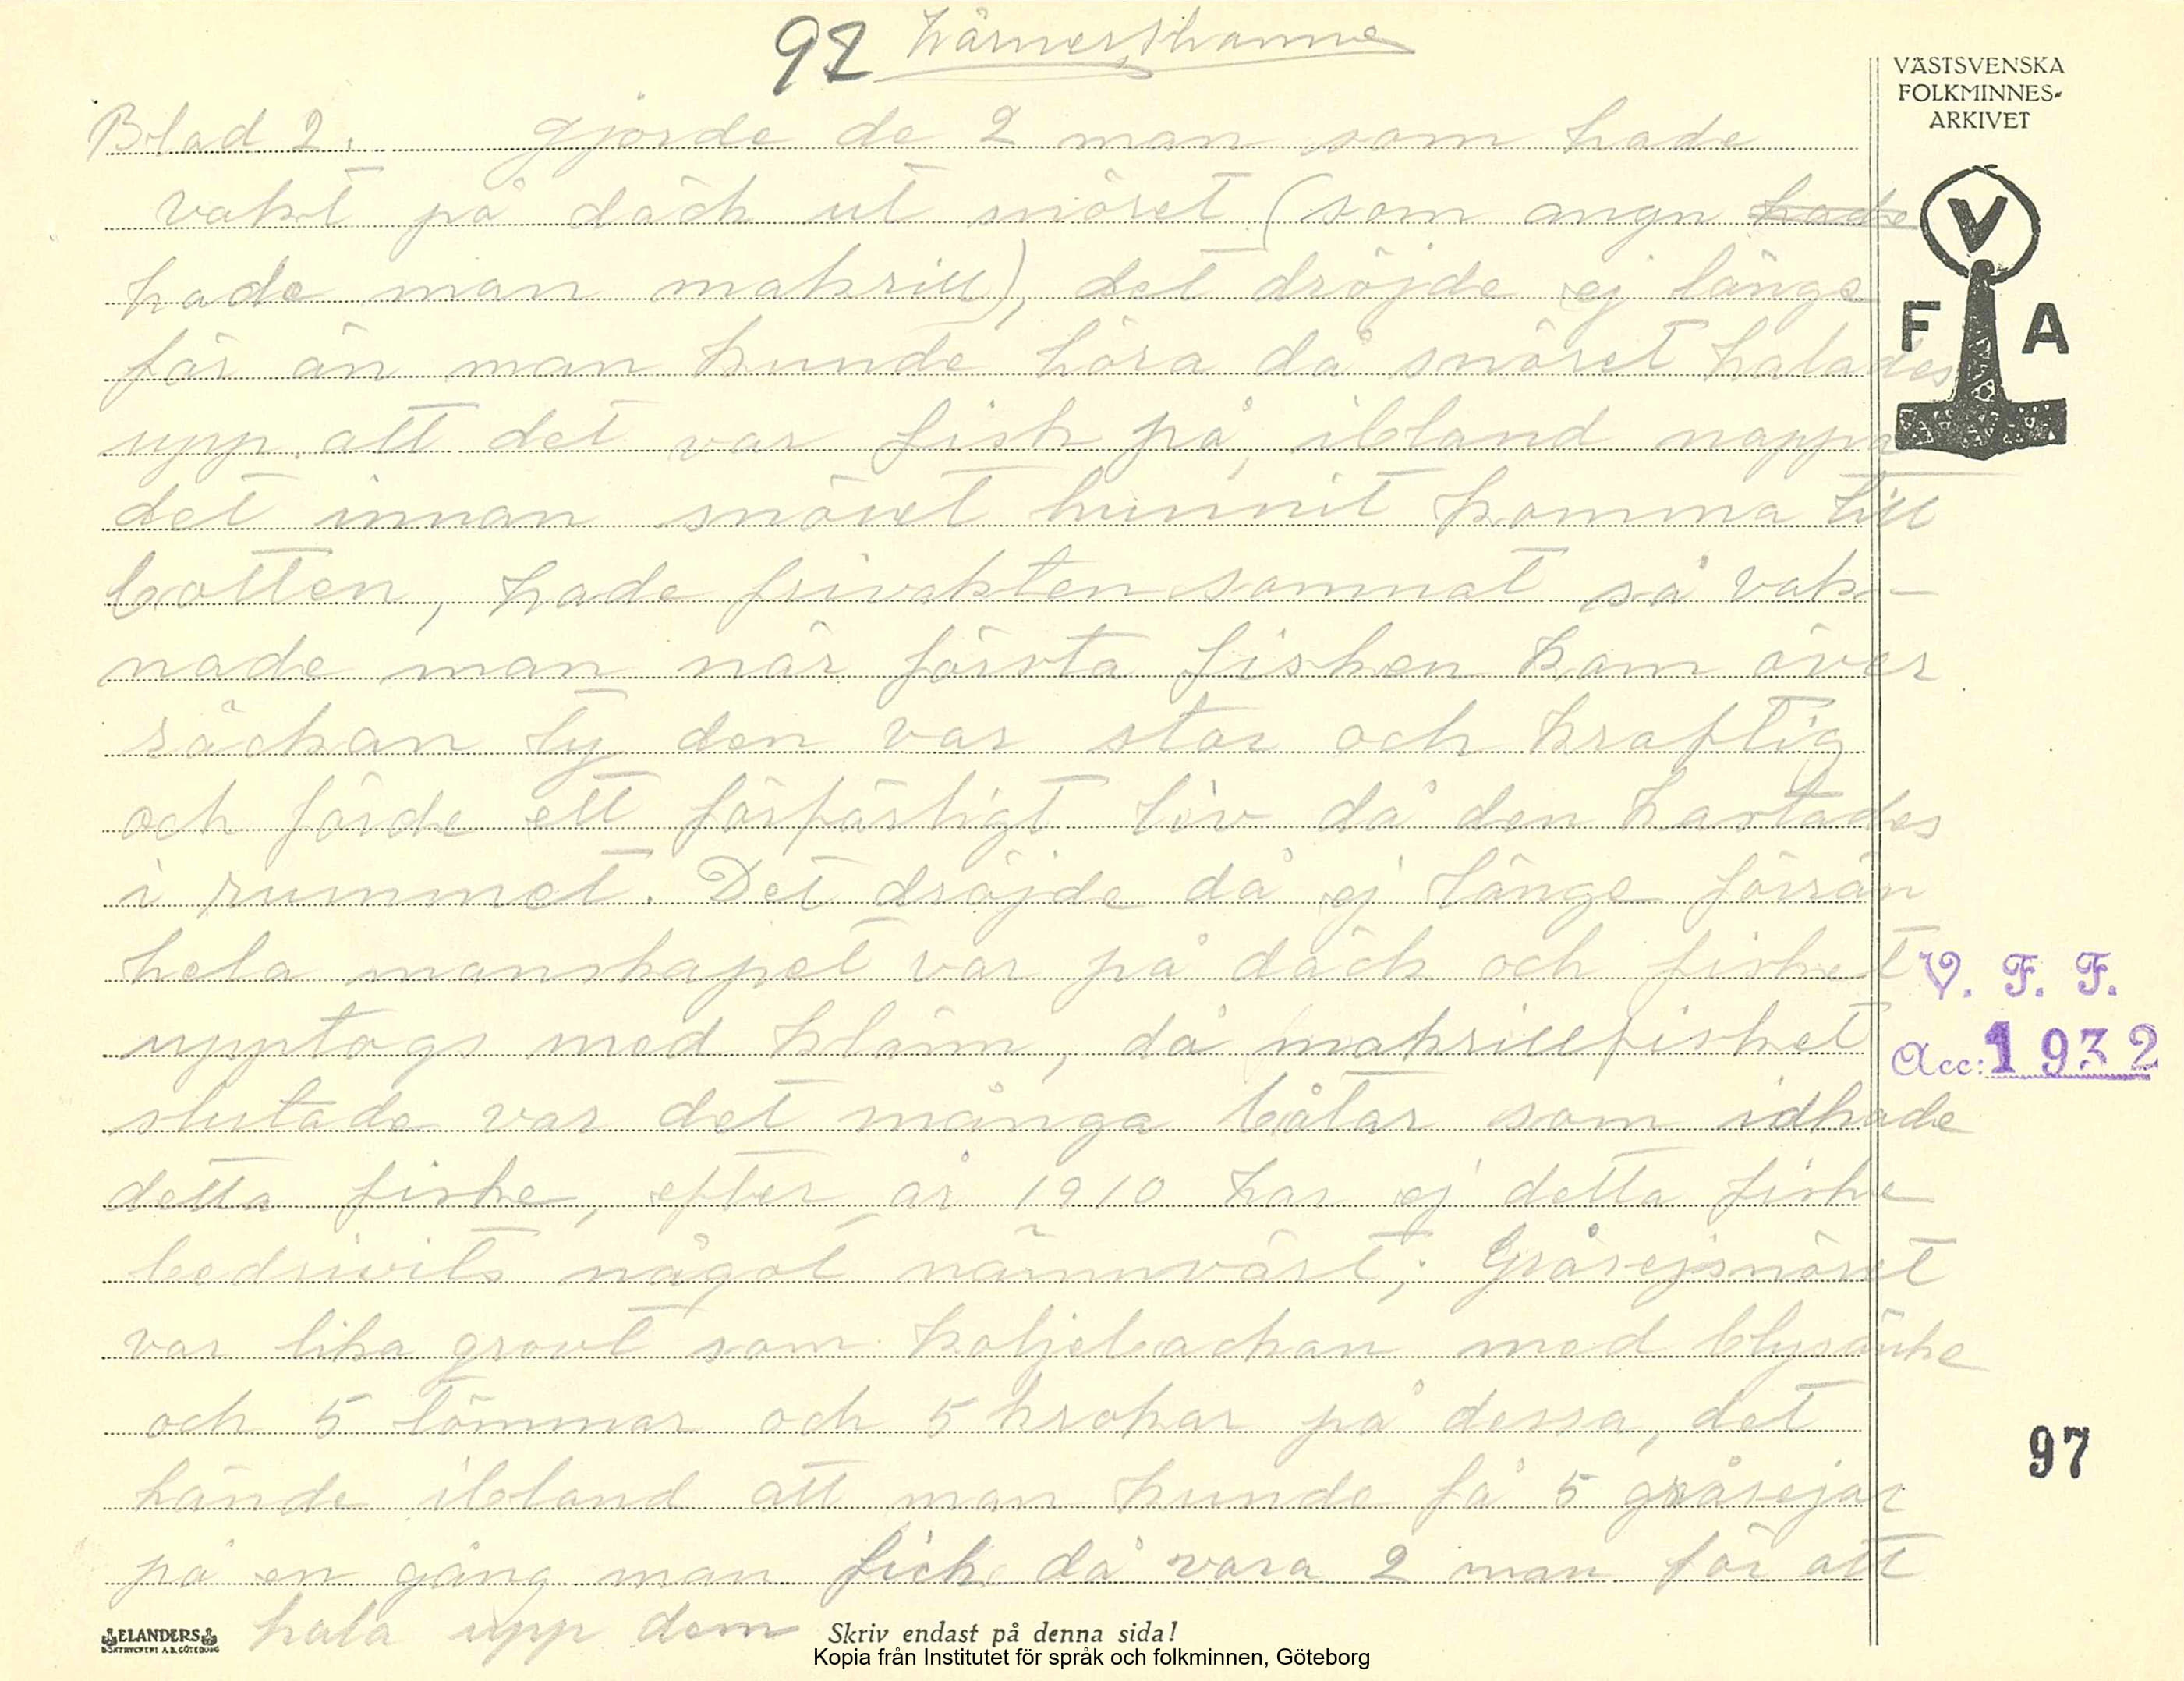 92 Hårmerskamme
VÄSTSVENSKA
FOLKMINNES-
ARKIVET
V
F A
Blad 2. gjorde de 2 man som hade
vakt på däck ut snöret (som angn hade
hade man makrill), det dröjde ej länge
för än man kunde höra då snöret halades
upp att det var fisk på, ibland nappa
det innan snöret hunnit komma till
botten, hade frivakten somnat så vak-
nade man när första fisken kom över
räckan ty den var stor och kraftig
och förde ett förfärligt liv då den kastades
i rummet. Det dröjde då ej länge förrän
hela manskapet var på däck och fisket
upptogs med kläm, då makrillfisket
slutade var det många båtar som idkade
detta fiske, efter år 1910 har ej detta fiske
bedrivits något nämnvärt; Gråsejsnöret
var lika grovt som koljebackan med blysänke
och 5 tömmar och 5 krokar på dessa, det
hände ibland att man kunde få 5 gråsejar
på en gång man fick då vara 2 man för att
hala upp dem
V. F. F.
Acc: 1932
97
ELANDERS
BOKTRYCKERI A.B. GÖTEBORG
Skriv endast på denna sida!
Kopia från Institutet för språk och folkminnen, Göteborg